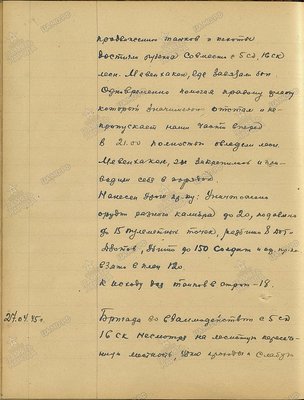 продвижении танков и пехоты
достигли рубежа Совместно с 5 сд, 16 ск
леси. Мевенхакен, где завязали бой.
Одновременно помогая правому флангу
который значительно отстал и не
пропускаем наши части вперед
в 21.00 полностью овладели леси.
Мевенхакен, где закрепились и при-
водим себя в порядок
Нанесен урон пр-ку: Уничтожено
орудий разного калибра до 20, подавлено
до 15 пулеметных точек, разбито 8 авто-
до 150 солдат и оф. пр-ка
взято в плен 120.
К исходу дня танков в строю - 18.
27.04.45 г.
Бригада во взаимодействии с 5 сд
16 СК несмотря на лесистую пересечен-
местность,